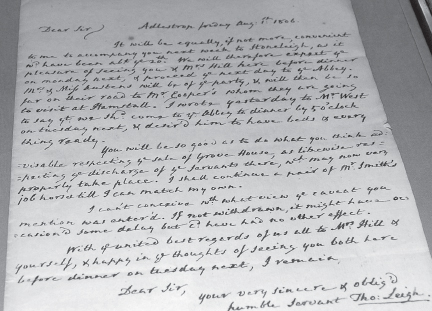 Dear Sir, Adlestrop friday Aug. 1st 1806.
It will be equally, if not more, convenient
to me to accompany you next week to Stoneleigh, as it
wd. have been abt. ye 20th. We will therefore expect ye
pleasure of seeing you & Mrs. Hill here before dinner
on monday next, & proceed ye next day to ye Abbey.
Mrs. & Miss Austens will be of ye party, & will then be so
far on their road to Mr. Cooper's whom they are going
to visit at Hamstall. I wrote yesterday to Mr. West
to say yt. we shd. come to ye Abbey to dinner by 5 o'clock
on tuesday next, & desir'd him to have beds & every
thing ready.
You will be so good as to do what you think ad-
visable respecting ye sale of Grove House, as likewise res-
pecting ye discharge of ye servants there, wt. may now very
properly take place. I shall continue a pair of Mr. Smith's
job horses till I can match my own.
I can't conceive wth. what view ye caveat you
mention was enter'd. If not withdrawn it might have oc-
casion'd some delay but cd. have had no other effect.
With ye united best regards of us all to Mrs. Hill &
yourself, & happy in ye thoughts of seeing you both here
before dinner on tuesday next, I remain,
Dear Sir, your very sincere & oblig'd
humble servant Tho: Leigh.